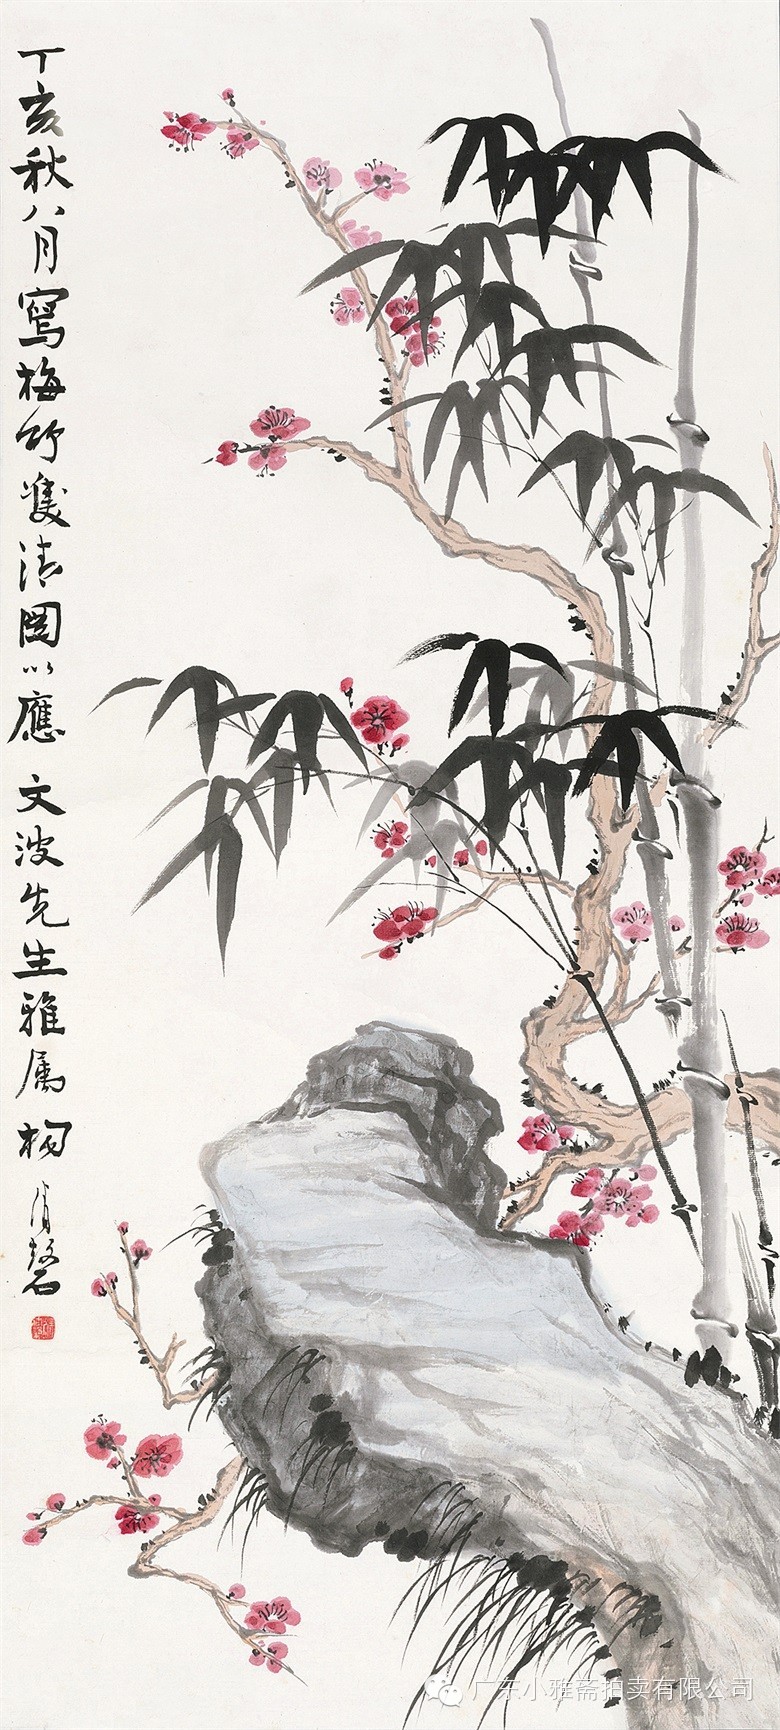 丁亥秋八月寫梅竹雙清圖以應 文波先生雅属 楊清磬
广东小雅斋拍卖有限公司